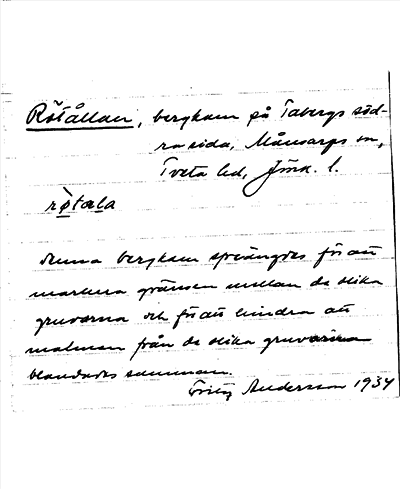 Rötållan, bergkam på Tabergs söd-
ra sida, Månsarps sn,
Tveta hd, Jönk. l.
rø̀tala
denna bergkam sprängdes för att
markera gränsen mellan de olika
gruvorna och för att hindra att
malmen från de olika gruvorna
blandades samman.
Fritz Andersson 1934